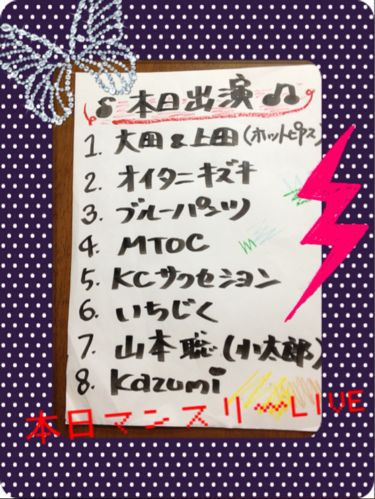 本日出演
1. 大田&上田(ホットピアス)
2. オイタニキズキ
3. ブルーパンツ
4. MTOC
5. KCサクセション
6. いちじく
7. 山本聡(小太郎)
8. Kazumi
本日マンスリーLIVE